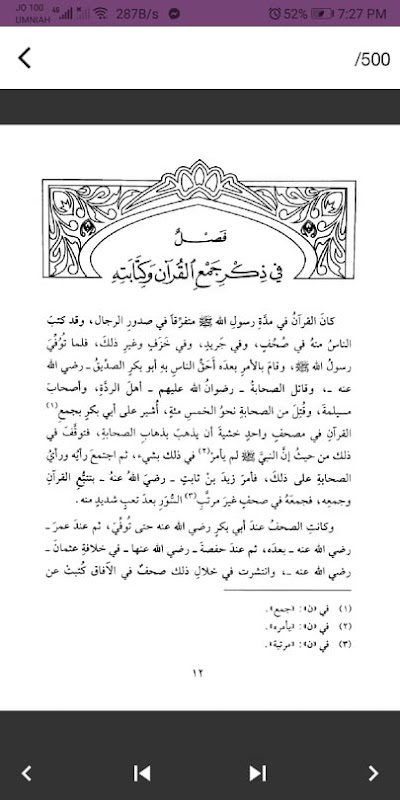 JO 100
UMNIAH
4G
287B/s
52%
7:27 PM
/500
فَصْلٌ
فِي ذِكْرِ جَمْعِ القُرْآنِ وَكِتَابَتِهِ
كانَ القرآنُ في مدَّةِ رسولِ الله ﷺ متفرِّقاً في صدورِ الرجالِ، وقد كتبَ
الناسُ منهُ في صُحُفٍ، وفي جَريدٍ، وفي خَزَفٍ وغيرِ ذلكَ، فلما تُوُفِّيَ
رسولُ الله ﷺ، وقامَ بالأمرِ بعدَه أَحَقُّ الناسِ بهِ أبو بكرٍ الصدِّيقُ ـ رضي الله
عنه ـ، وقاتل الصحابةُ ـ رضوانُ الله عليهم ـ أهلَ الردَّةِ، وأصحابَ
مسيلمةَ، وقُتِلَ من الصحابةِ نحوُ الخمسِ مئةٍ، أُشير على أبي بكرٍ بجمعِ(١)
القرآنِ في مصحفٍ واحدٍ خشيةَ أن يذهبَ بذهابِ الصحابةِ، فتوقَّفَ في
ذلك من حيثُ إنَّ النبيَّ ﷺ لم يأمرْ(٢) في ذلك بشيء، ثم اجتمعَ رأيُه ورأيُ
الصحابةِ على ذلكَ، فأمرَ زيدَ بنَ ثابتٍ ـ رضيَ اللهُ عنهُ ـ بتتبُّعِ القرآنِ
وجمعِه، فجمعَهُ في صحفٍ غيرَ مرتَّبِ(٣) السُّوَرِ بعدَ تعبٍ شديدٍ منه.
وكانتِ الصحفُ عندَ أبي بكرٍ رضي الله عنه حتى تُوفِّيَ، ثم عندَ عمرَ ـ
رضي الله عنه ـ بعدَه، ثم عندَ حفصةَ ـ رضي الله عنها ـ في خلافةِ عثمانَ ـ
رضي الله عنه ـ، وانتشرت في خلالِ ذلك صحفٌ في الآفاقِ كُتبتْ عن
(١) في «ن»: «جمع».
(٢) في «ن»: «يأمره».
(٣) في «ن»: «مرتبة».
١٢